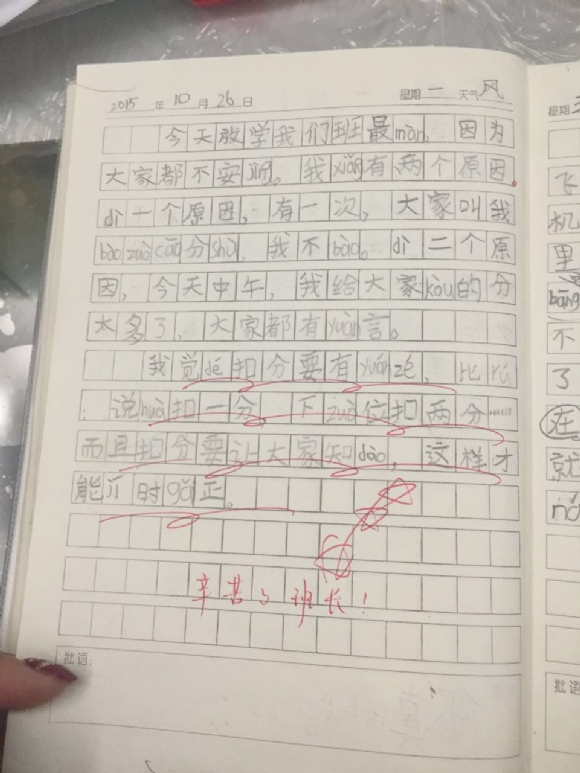 2015 年 10 月 26 日 星期 一 天气 风
今天放学我们班最màn。因为
大家都不安jìng。我xiǎng有两个原因。
dì一个原因，有一次，大家叫我
bào zuò cāo分shù，我不bào。dì二个原
因，今天中午，我给大家kòu的分
太多了，大家都有yuàn言。
我觉dé扣分要有yuán zé，比rú
：说huà扣一分，下zuò位扣两分……
而且扣分要让大家知dào，这样才
能jí时gǎi正。
辛苦了班长！
批语：
星期
飞
机
里
bāng
不
了
在
就
批语